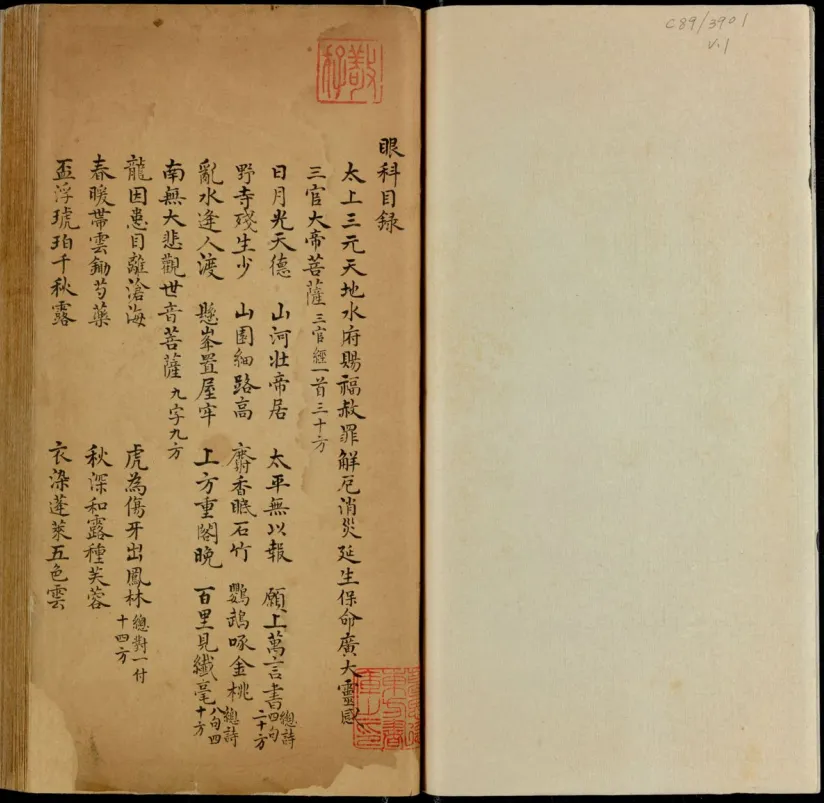 眼科目録
太上三元天地水府賜福赦罪解厄消災延生保命廣大靈感
三官大帝菩薩 三官經一首三十方
日月光天德 山河壯帝居 太平無以報 願上萬言書 總詩四句二十方
野寺殘生少 山園細路高 麝香眠石竹 鸚鵡啄金桃
亂水逢人渡 懸峯置屋牢 上方重閣晚 百里見纖毫 總詩八句四十方
南無大悲觀世音菩薩 九字九方
龍因患目離滄海 虎為傷牙出鳳林 總對一付十四方
春暖帶雲鋤芍藥 秋深和露種芙蓉
盃浮琥珀千秋露 衣染蓬萊五色雲
C89/3901
V.1